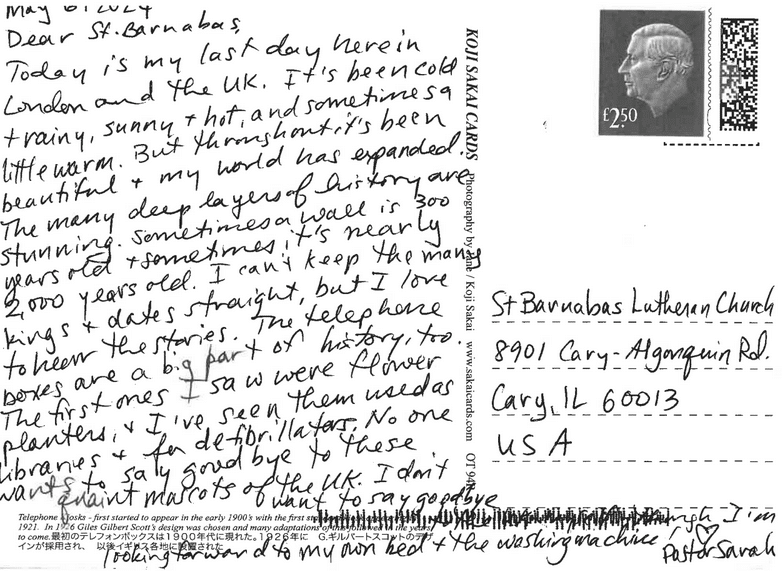 May 6, 2024
Dear St. Barnabas,
Today is my last day here in
London and the UK. It's been cold
+ rainy, sunny + hot, and sometimes a
little warm. But throughout it's been
beautiful + my world has expanded.
The many deep layers of history are
stunning. Sometimes a wall is 300
years old + sometimes it's nearly
2,000 years old. I can't keep the many
kings + dates straight, but I love
to hear the stories. The telephone
boxes are a big part of history, too.
The first ones I saw were flower
planters, + I've seen them used as
libraries + for defibrillators. No one
wants to say goodbye to these
quaint mascots of the UK. I don't
want to say goodbye
though I'm
looking forward to my own bed + the washing machine!
Pastor Sarah
Telephone Kiosks - first started to appear in the early 1900's with the first
1921. In 1926 Giles Gilbert Scott's design was chosen and many adaptations of this followed in the years
to come. 最初のテレフォンボックスは1900年代に現れた。1926年に G.ギルバートスコットのデザ
インが採用され、 以後イギリス各地に設置された
KOJI SAKAI CARDS Photography by / Koji Sakai www.sakaicards.com
£2.50
St Barnabas Lutheran Church
8901 Cary-Algonquin Rd.
Cary, IL 60013
USA